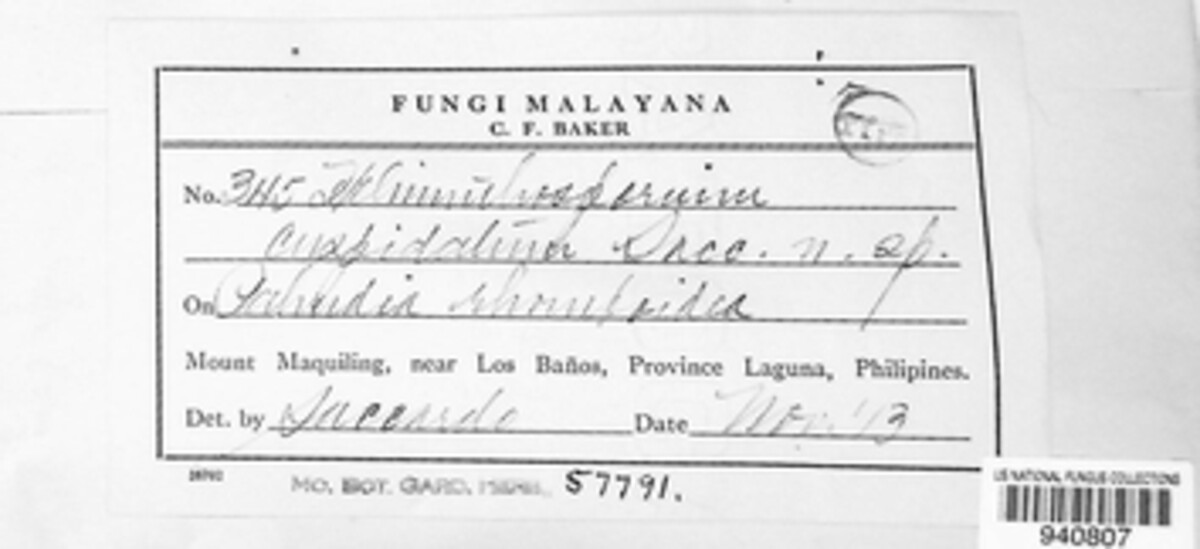 FUNGI MALAYANA
C. F. BAKER
No. 345 Helminthosporium
cuspidatum Sacc. n. sp.
On Sida rhombifolia
Mount Maquiling, near Los Baños, Province Laguna, Philipines.
Det. by Saccardo Date Nov. '13
MO. BOT. GARD. HERB. 57791.
US NATIONAL FUNGUS COLLECTIONS
940807